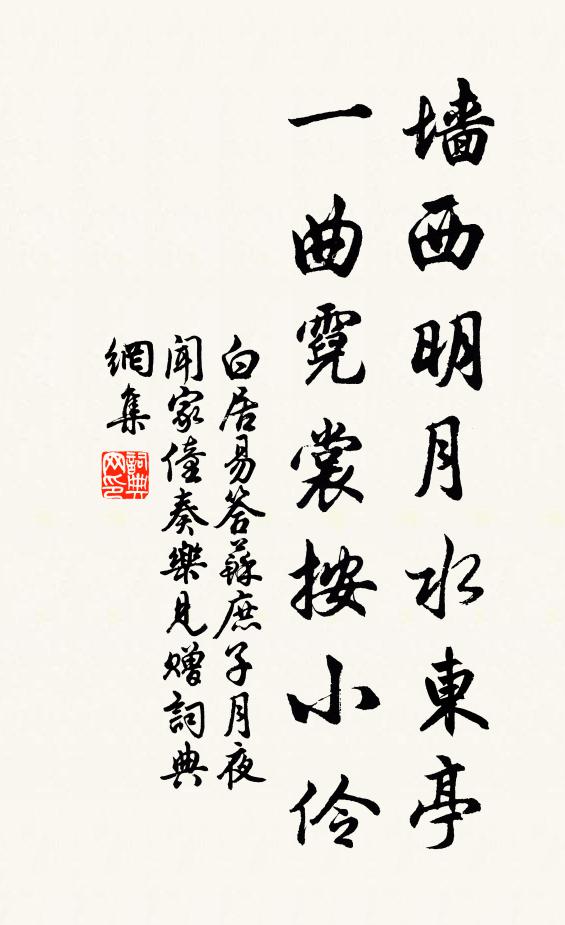 墙西明月水東亭
一曲霓裳按小伶
白居易答蘇庶子月夜
聞家僮奏樂見贈詞典
網集
詞典
网印